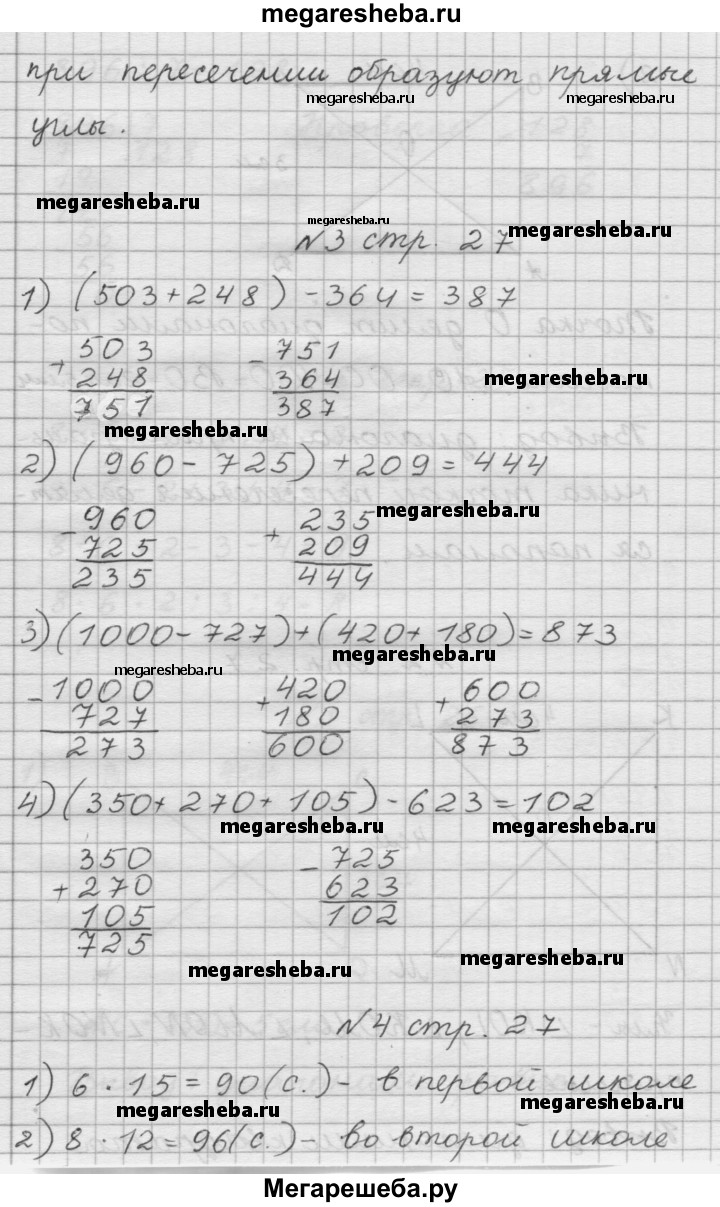 megaresheba.ru
при пересечении образуют прямые
megaresheba.ru megaresheba.ru
углы.
megaresheba.ru
megaresheba.ru
№3 стр. 27 megaresheba.ru
1) (503+248) - 364 = 387
+503 -751
248 364 megaresheba.ru
751 387
megaresheba.ru
2) (960 - 725) + 209 = 444
-960 +235 megaresheba.ru
725 209
235 444
3) (1000 - 727) + (420 + 180) = 873
megaresheba.ru megaresheba.ru
-1000 +420 +600
727 180 273
273 600 873
4) (350 + 270 + 105) - 623 = 102
megaresheba.ru megaresheba.ru
350 -725
+270 623
105 102
725
megaresheba.ru megaresheba.ru
№4 стр. 27
1) 6 · 15 = 90 (с.) - в первой школе
megaresheba.ru megaresheba.ru
2) 8 · 12 = 96 (с.) - во второй школе
Мегарешеба.ру